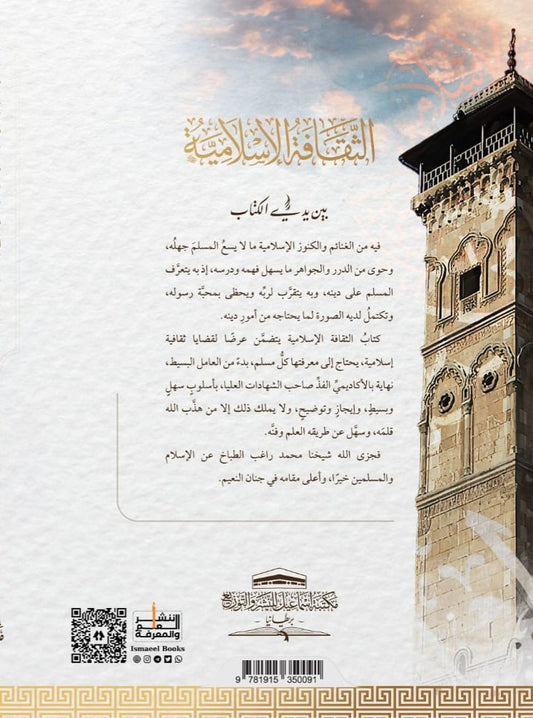 الثَّقَافَةُ الإِسْلَامِيَّةُ
بين يدي الكتاب
فيه من الغنائم والكنوز الإسلامية ما لا يسعُ المسلمَ جهلُه،
وحوى من الدرر والجواهر ما يسهل فهمه ودرسه، إذ به يتعرَّف
المسلم على دينه، وبه يتقرَّب لربِّه ويحظى بمحبَّة رسوله،
وتكتملُ لديه الصورة لما يحتاجه من أمورِ دينه.
كتابُ الثقافة الإسلامية يتضمَّن عرضًا لقضايا ثقافية
إسلامية، يحتاج إلى معرفتها كلُّ مسلم، بدءً من العامل البسيط،
نهاية بالأكاديميِّ الفذِّ صاحب الشهادات العليا، بأسلوبٍ سهلٍ
وبسيطٍ، وإيجازٍ وتوضيحٍ، ولا يملك ذلك إلا من هذَّب الله
قلمَه، وسهَّل عن طريقه العلم وفنَّه.
فجزى الله شيخنا محمد راغب الطباخ عن الإسلام
والمسلمين خيرًا، وأعلى مقامه في جنان النعيم.
مكتبة إسماعيل للنشر والتوزيع
بريطانيا
لنشر
العلم
والمعرفة
Ismaeel Books
9 781915 350091